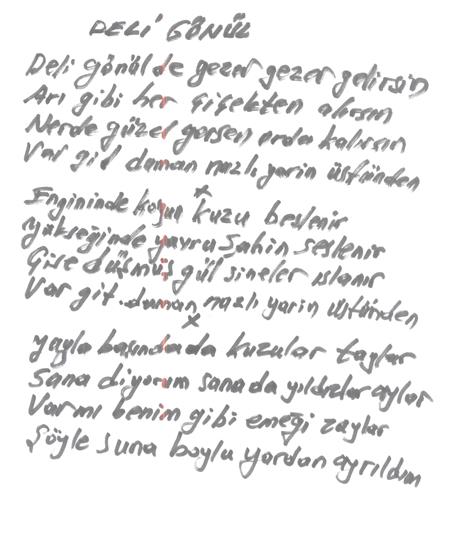 DELİ GÖNÜL
Deli gönül de gezer gezer gelirsin
Arı gibi her çiçekten alırsın
Nerde güzel gorsen orda kalırsın
Var git duman nazlı yarin üstünden
x
Engininde koyun kuzu beslenir
yükseğinde yavru Şahin seslenir
Çise düşmüş gül sineler ıslanır
Var git duman nazlı yarin üstünden
x
yayla başında da kuzular taylar
Sana diyorum sana da yıldızlar aylar
Varmı benim gibi emeği zaylar
Şöyle Suna boylu yardan ayrıldım